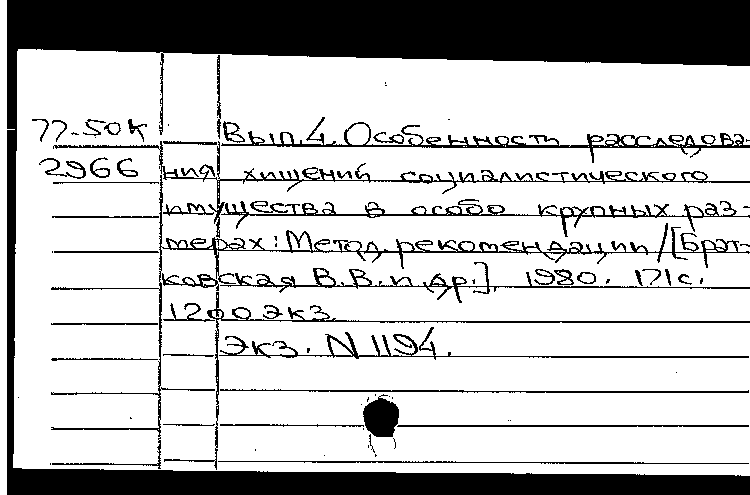 77-50к Вып.4. Особенности расследова-
2966 ния хищений социалистического
имущества в особо крупных раз-
мерах: Метод. рекомендации / [Брат-
ковская В.В. и др.]. 1980. 171 с.
1200 экз.
Экз. N 1194.